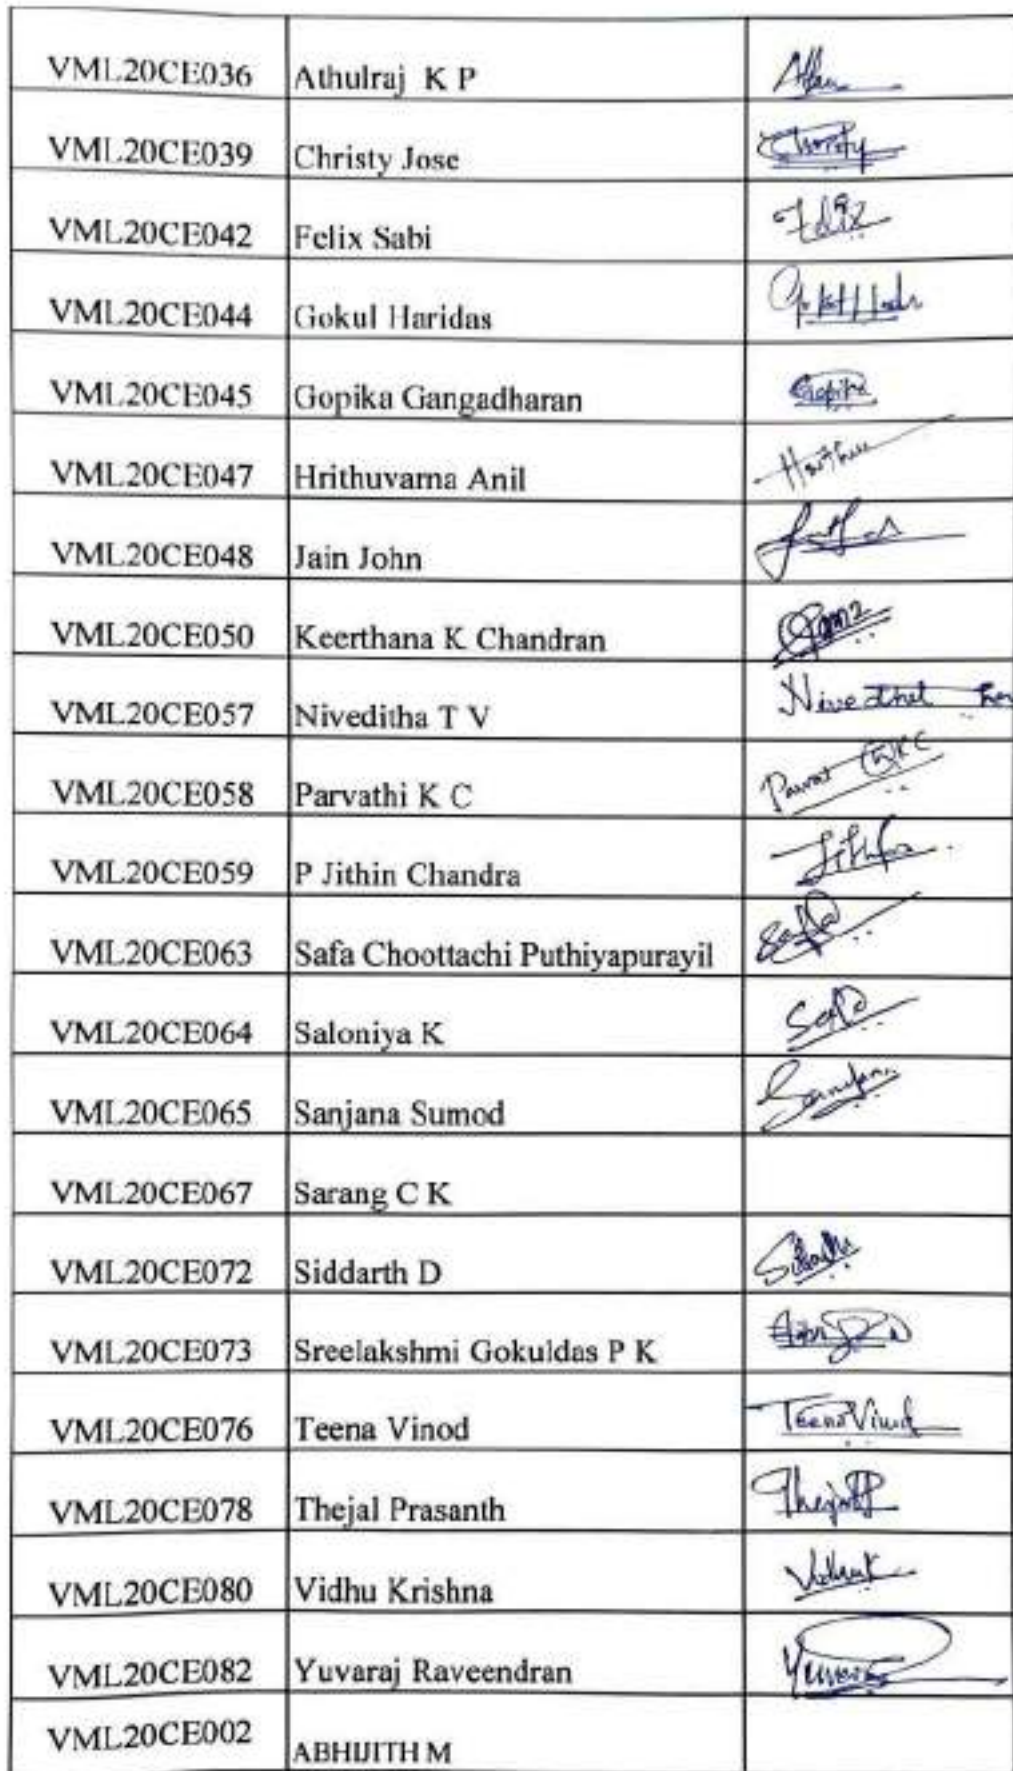 VML20CE036 Athulraj K P
VML20CE039 Christy Jose Christy
VML20CE042 Felix Sabi Felix
VML20CE044 Gokul Haridas
VML20CE045 Gopika Gangadharan Gopika
VML20CE047 Hrithuvarna Anil
VML20CE048 Jain John
VML20CE050 Keerthana K Chandran
VML20CE057 Niveditha T V
VML20CE058 Parvathi K C
VML20CE059 P Jithin Chandra
VML20CE063 Safa Choottachi Puthiyapurayil Safa
VML20CE064 Saloniya K
VML20CE065 Sanjana Sumod
VML20CE067 Sarang C K
VML20CE072 Siddarth D
VML20CE073 Sreelakshmi Gokuldas P K
VML20CE076 Teena Vinod Teena Vinod
VML20CE078 Thejal Prasanth
VML20CE080 Vidhu Krishna
VML20CE082 Yuvaraj Raveendran
VML20CE002 ABHIJITH M